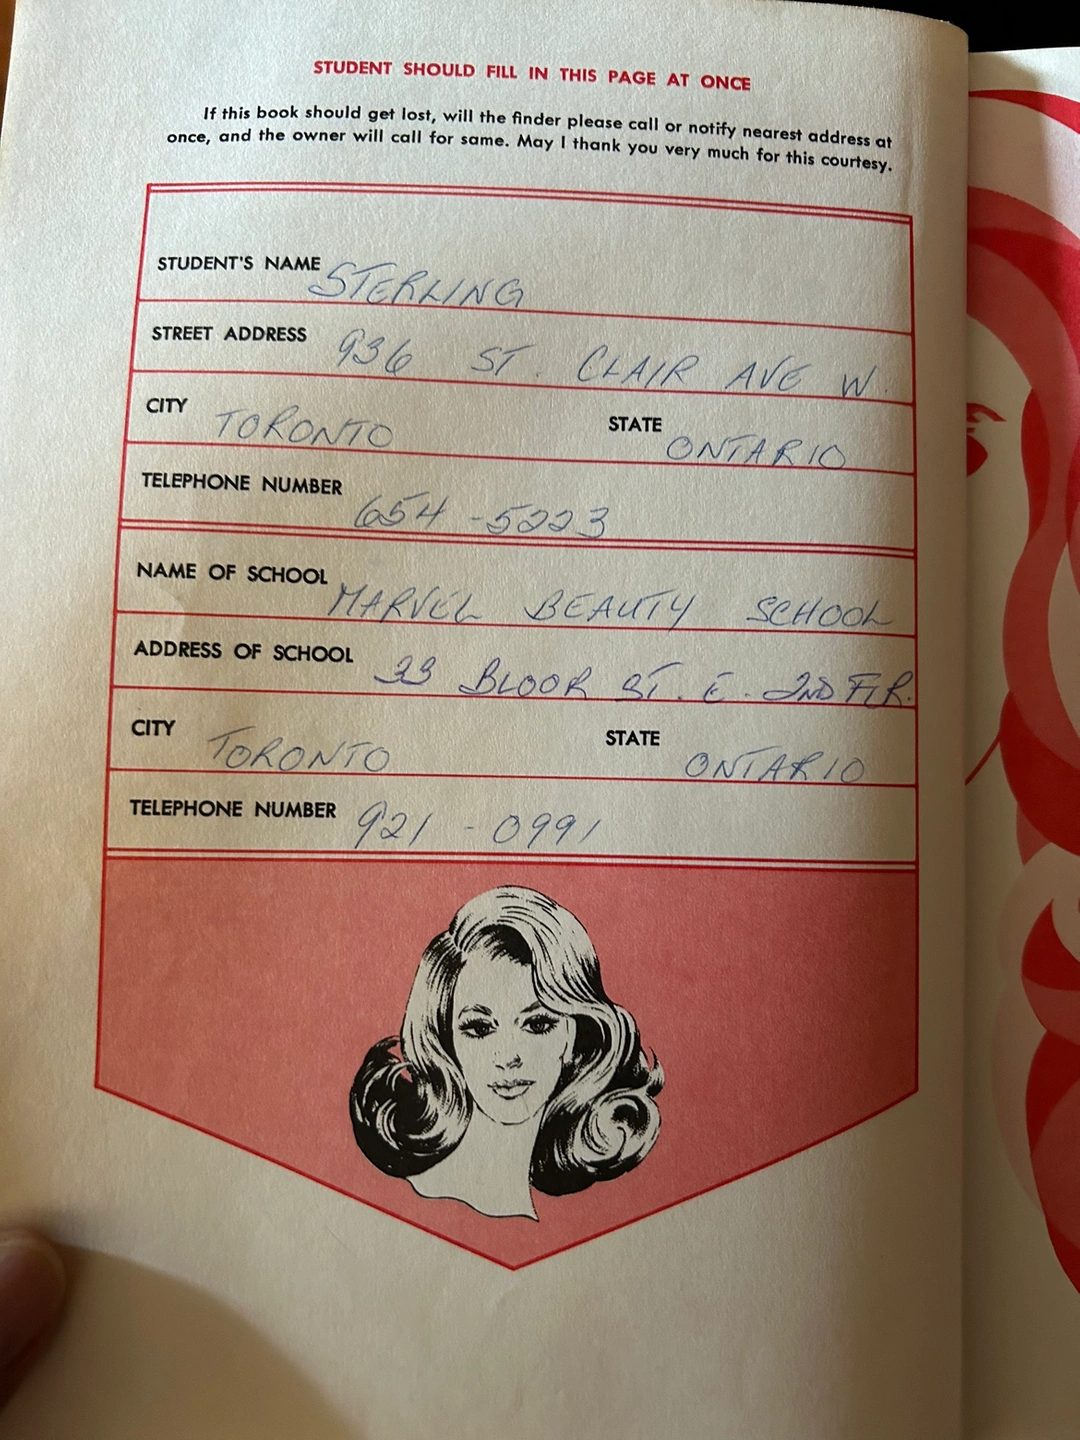 STUDENT SHOULD FILL IN THIS PAGE AT ONCE
If this book should get lost, will the finder please call or notify nearest address at
once, and the owner will call for same. May I thank you very much for this courtesy.
STUDENT'S NAME STERLING
STREET ADDRESS 936 ST. CLAIR AVE W.
CITY TORONTO STATE ONTARIO
TELEPHONE NUMBER 654-5223
NAME OF SCHOOL MARVEL BEAUTY SCHOOL
ADDRESS OF SCHOOL 33 BLOOR ST. E. 2ND FLR.
CITY TORONTO STATE ONTARIO
TELEPHONE NUMBER 921-0991